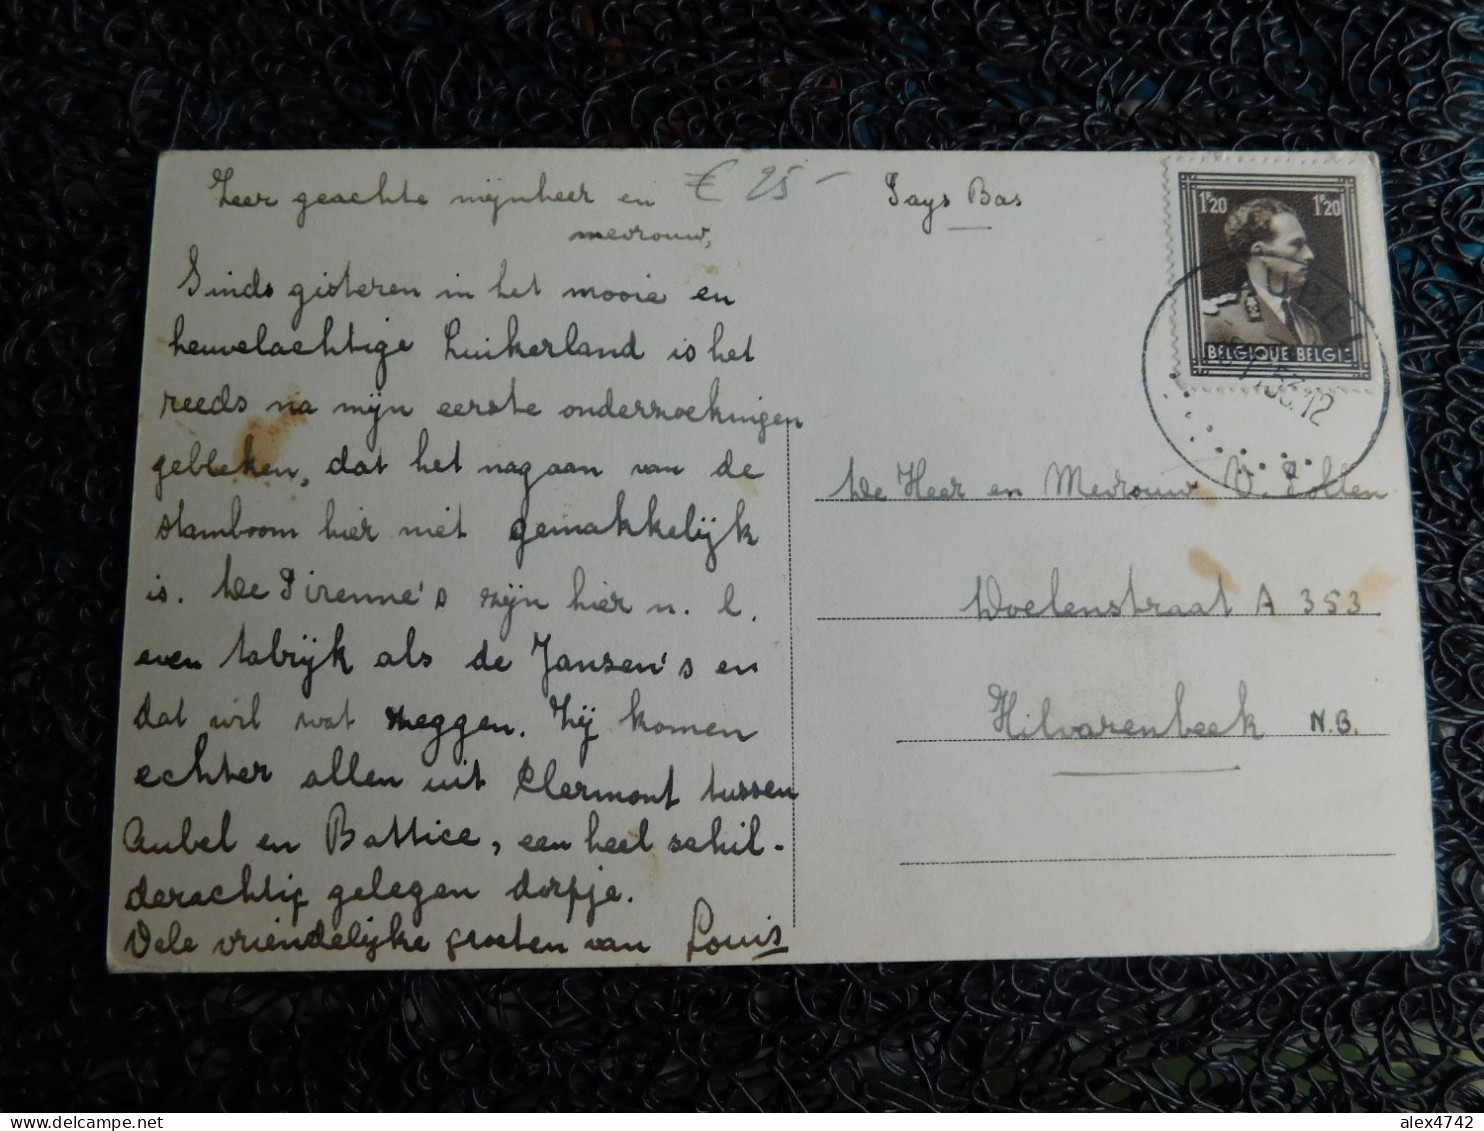 Zeer geachte mijnheer en
mevrouw,
Sinds gisteren in het mooie en
heuvelachtige Luikerland is het
reeds na mijn eerste onderzoekingen
gebleken, dat het nagaan van de
stamboom hier niet gemakkelijk
is. De Pirenne's zijn hier n. l.
even talrijk als de Jansen's en
dat wil wat zeggen. Zij komen
echter allen uit Clermont tussen
Aubel en Battice, een heel schil-
derachtig gelegen dorpje.
Vele vriendelijke groeten van Louis
€ 25 -
Pays Bas
1F20 1F20
BELGIQUE BELGIE
De Heer en Mevrouw
Doelenstraat A 353
Hilvarenbeek N.B.
alex4742